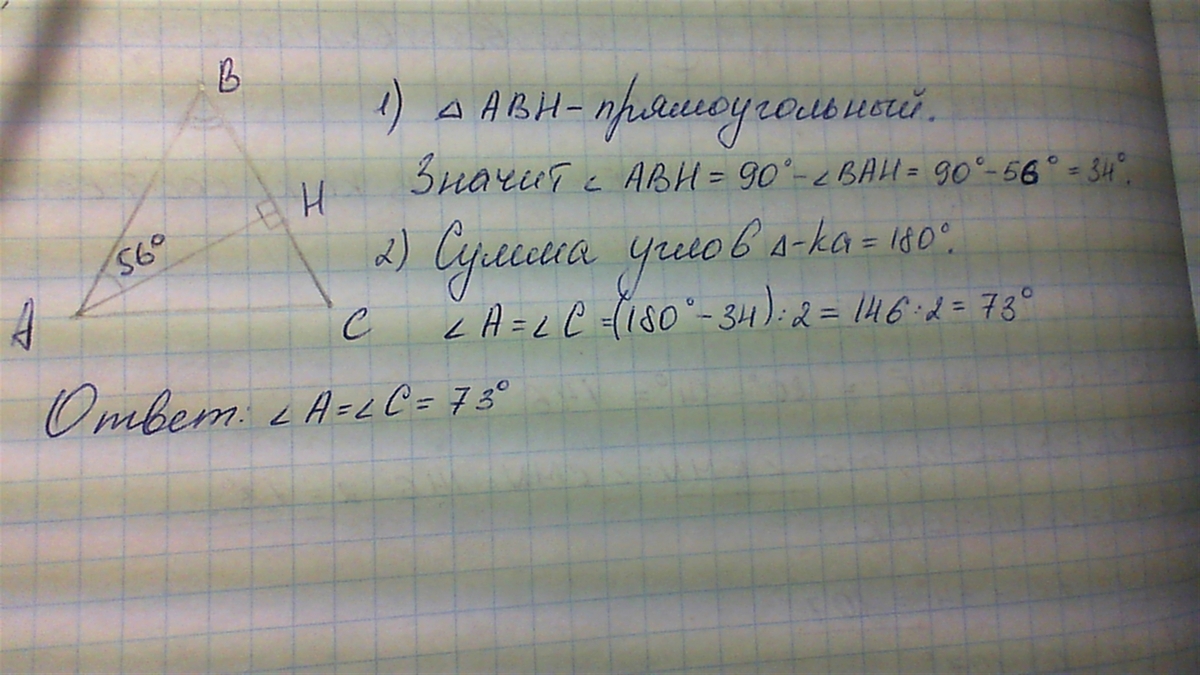 B
1) △ ABH - прямоугольный.
H
Значит ∠ ABH = 90° - ∠BAH = 90° - 56° = 34°.
56°
2) Сумма углов △-ка = 180°.
A
C
∠ A = ∠ C = (180° - 34) : 2 = 146 : 2 = 73°
Ответ: ∠ A = ∠ C = 73°